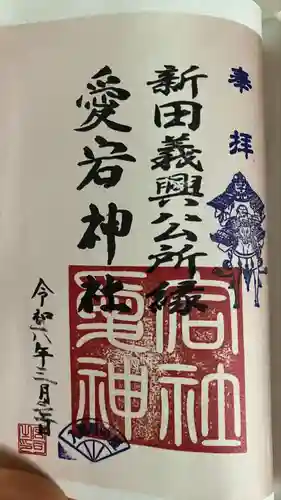 奉拝
新田義興公所縁
愛宕神社
令和六年三月二日
愛宕神社